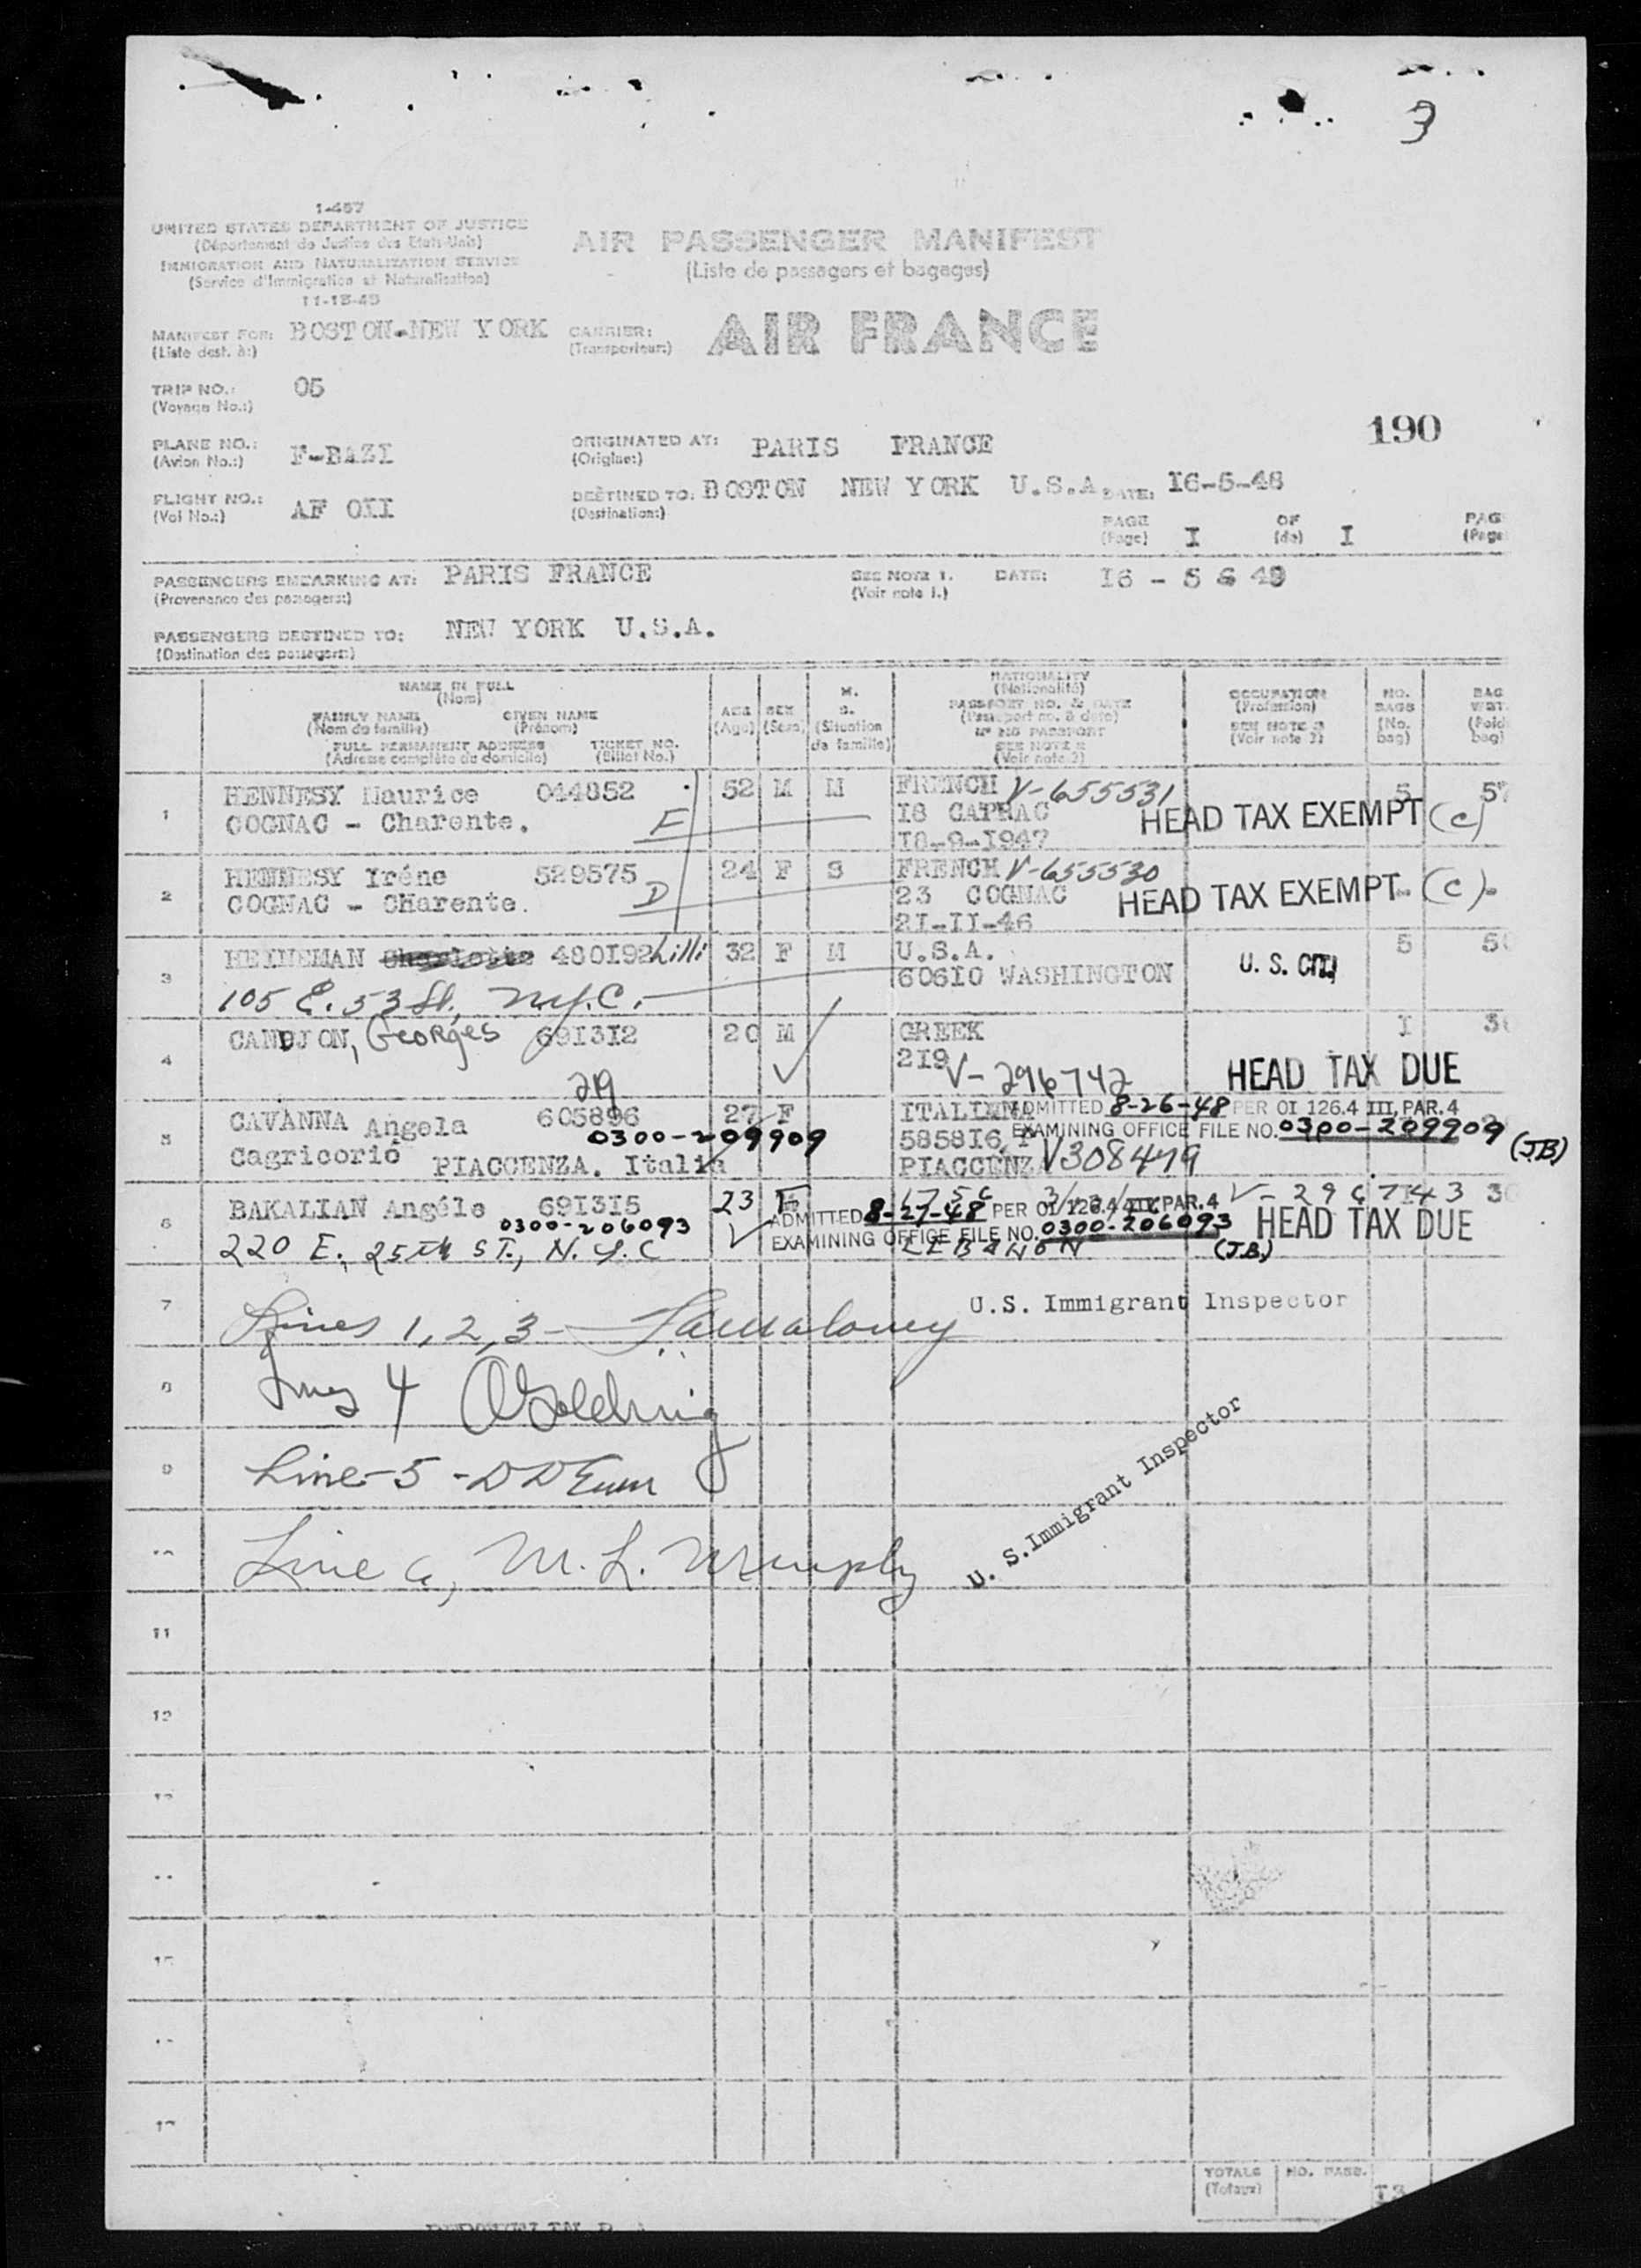 3
1-457
UNITED STATES DEPARTMENT OF JUSTICE
(Département de Justice des Etats-Unis)
IMMIGRATION AND NATURALIZATION SERVICE
(Service d'Immigration et Naturalisation)
11-15-45
AIR PASSENGER MANIFEST
(Liste de passagers et bagages)
MANIFEST FOR: BOSTON-NEW YORK
(Liste dest. à:)
CARRIER: AIR FRANCE
(Transporteur:)
TRIP NO.: 05
(Voyage No.:)
190
PLANE NO.: F-BAZI
(Avion No.:)
ORIGINATED AT: PARIS FRANCE
(Origine:)
FLIGHT NO.: AF OII
(Vol No.:)
DESTINED TO: BOSTON NEW YORK U.S.A. DATE: I6-5-48
(Destination:)
PAGE I OF I PAG
(Page) (de) (Page
PASSENGERS EMBARKING AT: PARIS FRANCE
(Provenance des passagers:)
SEE NOTE 1. DATE: I6 - 5 48
(Voir note 1.)
PASSENGERS DESTINED TO: NEW YORK U.S.A.
(Destination des passagers:)
NAME IN FULL
(Nom)
FAMILY NAME GIVEN NAME
(Nom de famille) (Prénom)
FULL PERMANENT ADDRESS TICKET NO.
(Adresse complète du domicile) (Billet No.)
AGE
(Age)
SEX
(Sexe)
M.
S.
(Situation
de famille)
NATIONALITY
(Nationalité)
PASSPORT NO. & DATE
(Passeport no. & date)
IF NO PASSPORT
SEE NOTE 2
(Voir note 2)
OCCUPATION
(Profession)
SEE NOTE 3
(Voir note 3)
NO.
BAGS
(No.
bag)
BAG
WGT.
(Poids
bag)
1 HENNESY Maurice 044852 52 M M FRENCH V-655531 5 57
COGNAC - Charente. E I8 CAPRAC HEAD TAX EXEMPT (c)
I8-9-I947
2 HENNESY Iréne 529575 24 F S FRENCH V-655530
COGNAC - CHarente. D 23 COGNAC HEAD TAX EXEMPT (c)
2I-II-46
3 HEINEMAN 480I92 Lilli 32 F M U.S.A. U. S. CIT. 5 50
105 E. 53 St., N.Y.C. 606I0 WASHINGTON
4 CANDJON, Georges 69I3I2 20 M GREEK I 30
219 V-296742 HEAD TAX DUE
219
5 CAVANNA Angela 605896 27 F ITALIENNE ADMITTED 8-26-48 PER OI 126.4 III, PAR. 4
0300-209909 5858I6 EXAMINING OFFICE FILE NO. 0300-209909 (JB)
Cagricorio PIACCENZA. Italia PIACCENZA V308479
6 BAKALIAN Angéle 69I3I5 23 F V-296743 30
0300-206093 ADMITTED 8-27-48 PER OI 126.4 III, PAR. 4 HEAD TAX DUE
220 E. 25TH ST., N.Y.C EXAMINING OFFICE FILE NO. 0300-206093 (JB)
LEBANON
7 Lines 1, 2, 3 - U.S. Immigrant Inspector
8 Lines 4
9 Line-5 -
Line 6, M. L. Murphy U. S. Immigrant Inspector
11
12
TOTALS NO. PASS.
(Totaux) I3